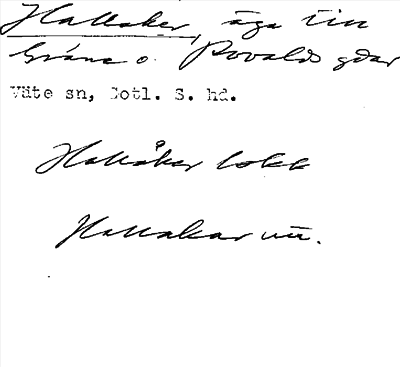 Hallaker, äga till
Gräne o. Rovalds gdar
Väte sn, Gotl. S. hd.
Hallåkar lokk
Hallakar uu.